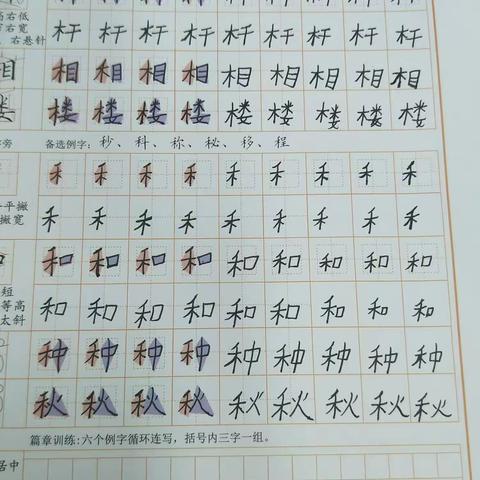 高右低
右宽 杆 杆 杆 杆 杆 杆 杆 杆 杆
、右悬针
相 相 相 相 相 相 相 相 相 相
楼 楼 楼 楼 楼 楼 楼 楼 楼 楼
字旁 备选例字：秒、科、称、秘、移、程
禾 禾 禾 禾 禾 禾 禾 禾 禾
平撇
撇宽 禾 禾 禾 禾 禾 禾 禾 禾 禾
和 和 和 和 和 和 和 和 和
短
等高 和 和 和 和 和 和 和 和 和
太斜
种 种 种 种 种 种 种 种 种
秋 秋 秋 秋 秋 秋 秋 秋 秋
篇章训练：六个例字循环连写，括号内三字一组。
居中